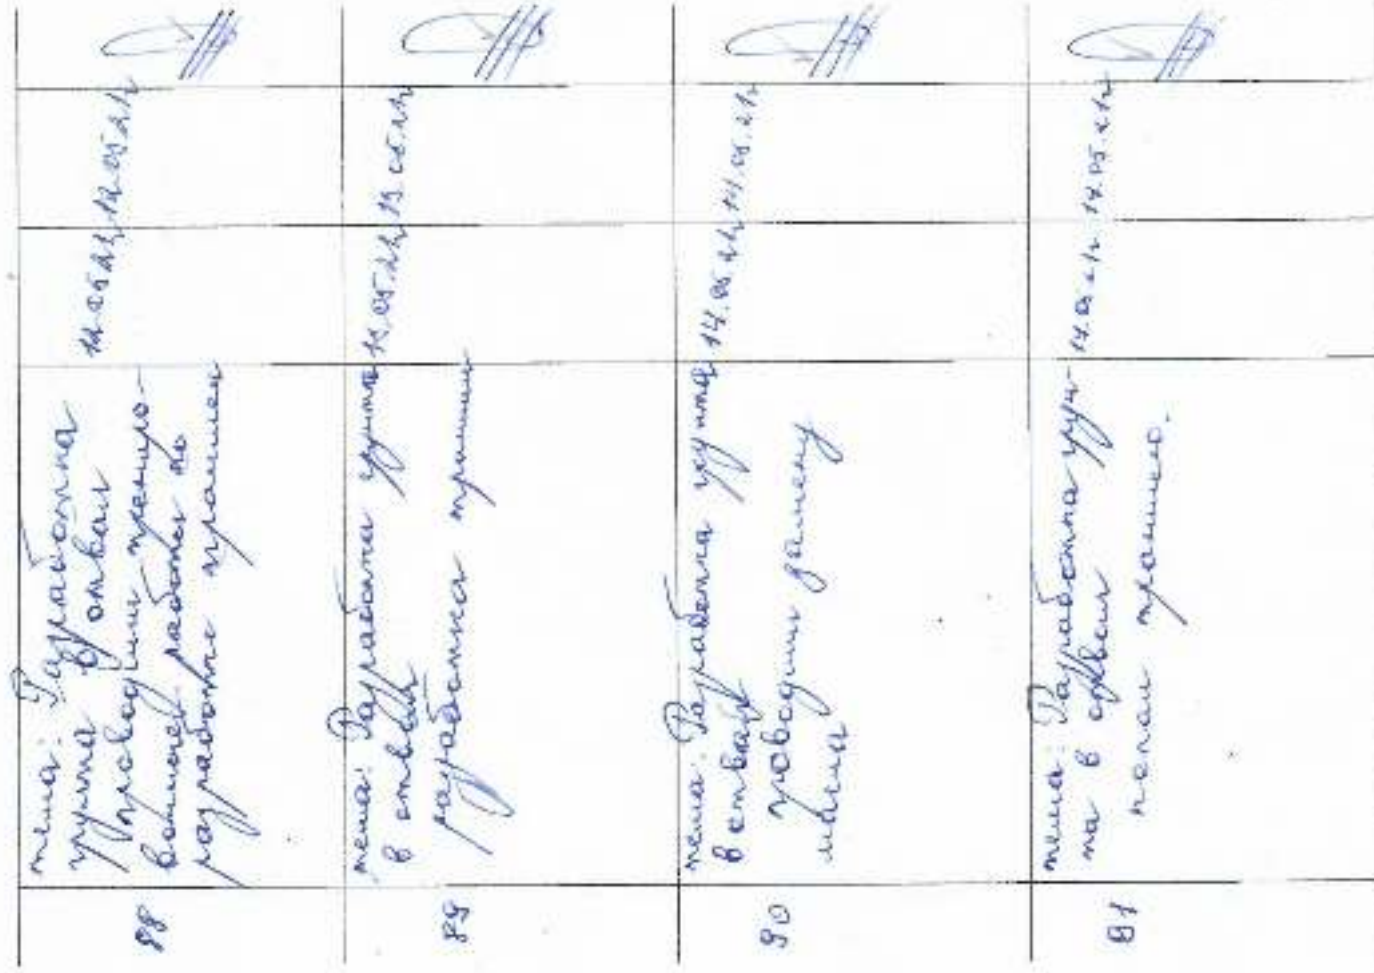 88
тема: Разработка
грунта в отвал
проводили трениро-
вочные работы по
разработке траншеи
12.05.21г 12.05.21г
89
тема: Разработка грунта
в отвал
разработка траншеи
13.05.21г 13.05.21г
90
тема: Разработка грунта
в отвал
проводили замену
масла
14.05.21г 14.05.21г
91
тема: Разработка грун-
та в отвал
копали траншею.
17.05.21г 17.05.21г